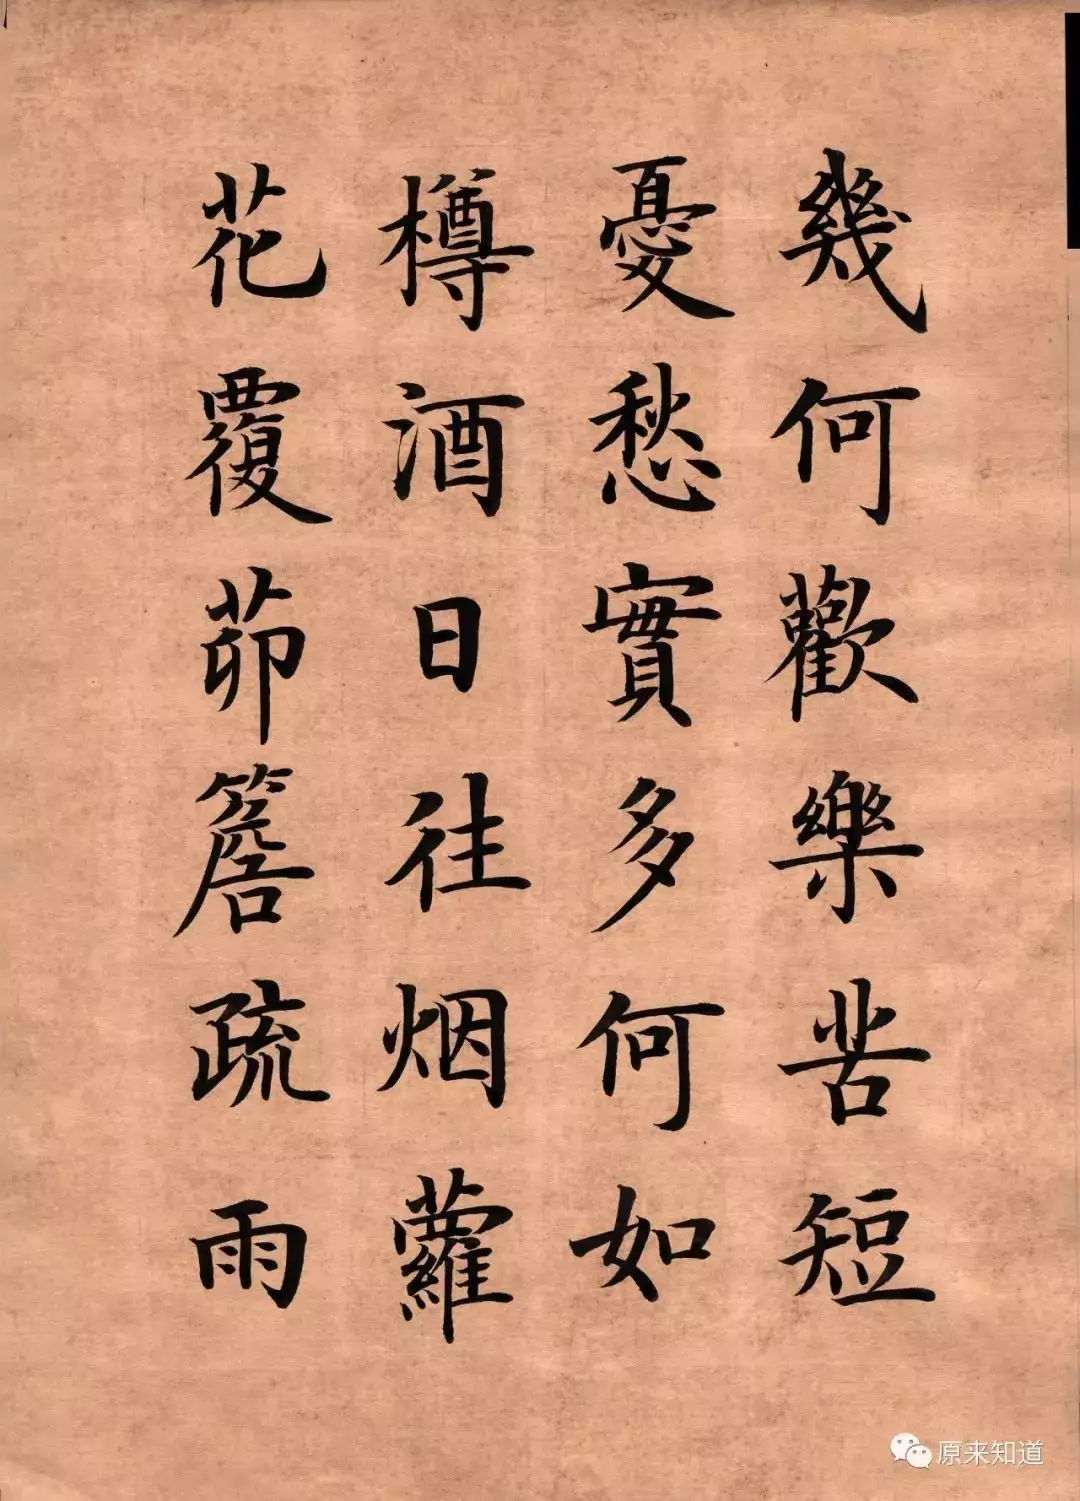 幾何歡樂苦短
憂愁實多何如
樽酒日往烟蘿
花覆茆簷疏雨
原来知道